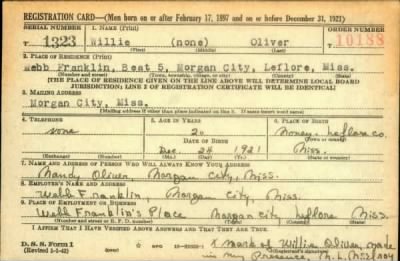 REGISTRATION CARD—(Men born on or after February 17, 1897 and on or before December 31, 1921)
SERIAL NUMBER 1. NAME (Print) ORDER NUMBER
T 1323 Willie (none) Oliver 10188
(First) (Middle) (Last)
2. PLACE OF RESIDENCE (Print)
Webb Franklin, Beat 5, Morgan City, Leflore, Miss.
(Number and street) (Town, township, village, or city) (County) (State)
[THE PLACE OF RESIDENCE GIVEN ON THE LINE ABOVE WILL DETERMINE LOCAL BOARD
JURISDICTION; LINE 2 OF REGISTRATION CERTIFICATE WILL BE IDENTICAL]
3. MAILING ADDRESS
Morgan City, Miss.
[Mailing address if other than place indicated on line 2. If same insert word same]
4. TELEPHONE 5. AGE IN YEARS 6. PLACE OF BIRTH
none 20 Money, Leflore Co.
DATE OF BIRTH
Dec. 24 1921 Miss.
(Exchange) (Number) (Mo.) (Day) (Yr.) (State or country)
7. NAME AND ADDRESS OF PERSON WHO WILL ALWAYS KNOW YOUR ADDRESS
Mandy Oliver, Morgan City, Miss.
8. EMPLOYER'S NAME AND ADDRESS
Webb Franklin, Morgan City, Miss.
9. PLACE OF EMPLOYMENT OR BUSINESS
Webb Franklin's Place Morgan City Leflore Miss
(Number and street or R. F. D. number) (Town) (County) (State)
I AFFIRM THAT I HAVE VERIFIED ABOVE ANSWERS AND THAT THEY ARE TRUE.
D. S. S. Form 1 X Mark of Willie Oliver, made
(Revised in my presence M. L.